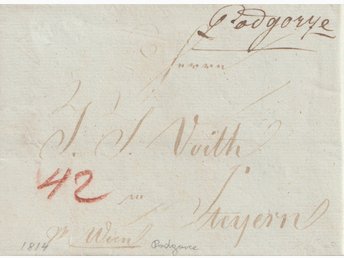 Podgorze
Herrn
J. J. Voith
42
in
Steyern
1814 pr Wien Podgorze